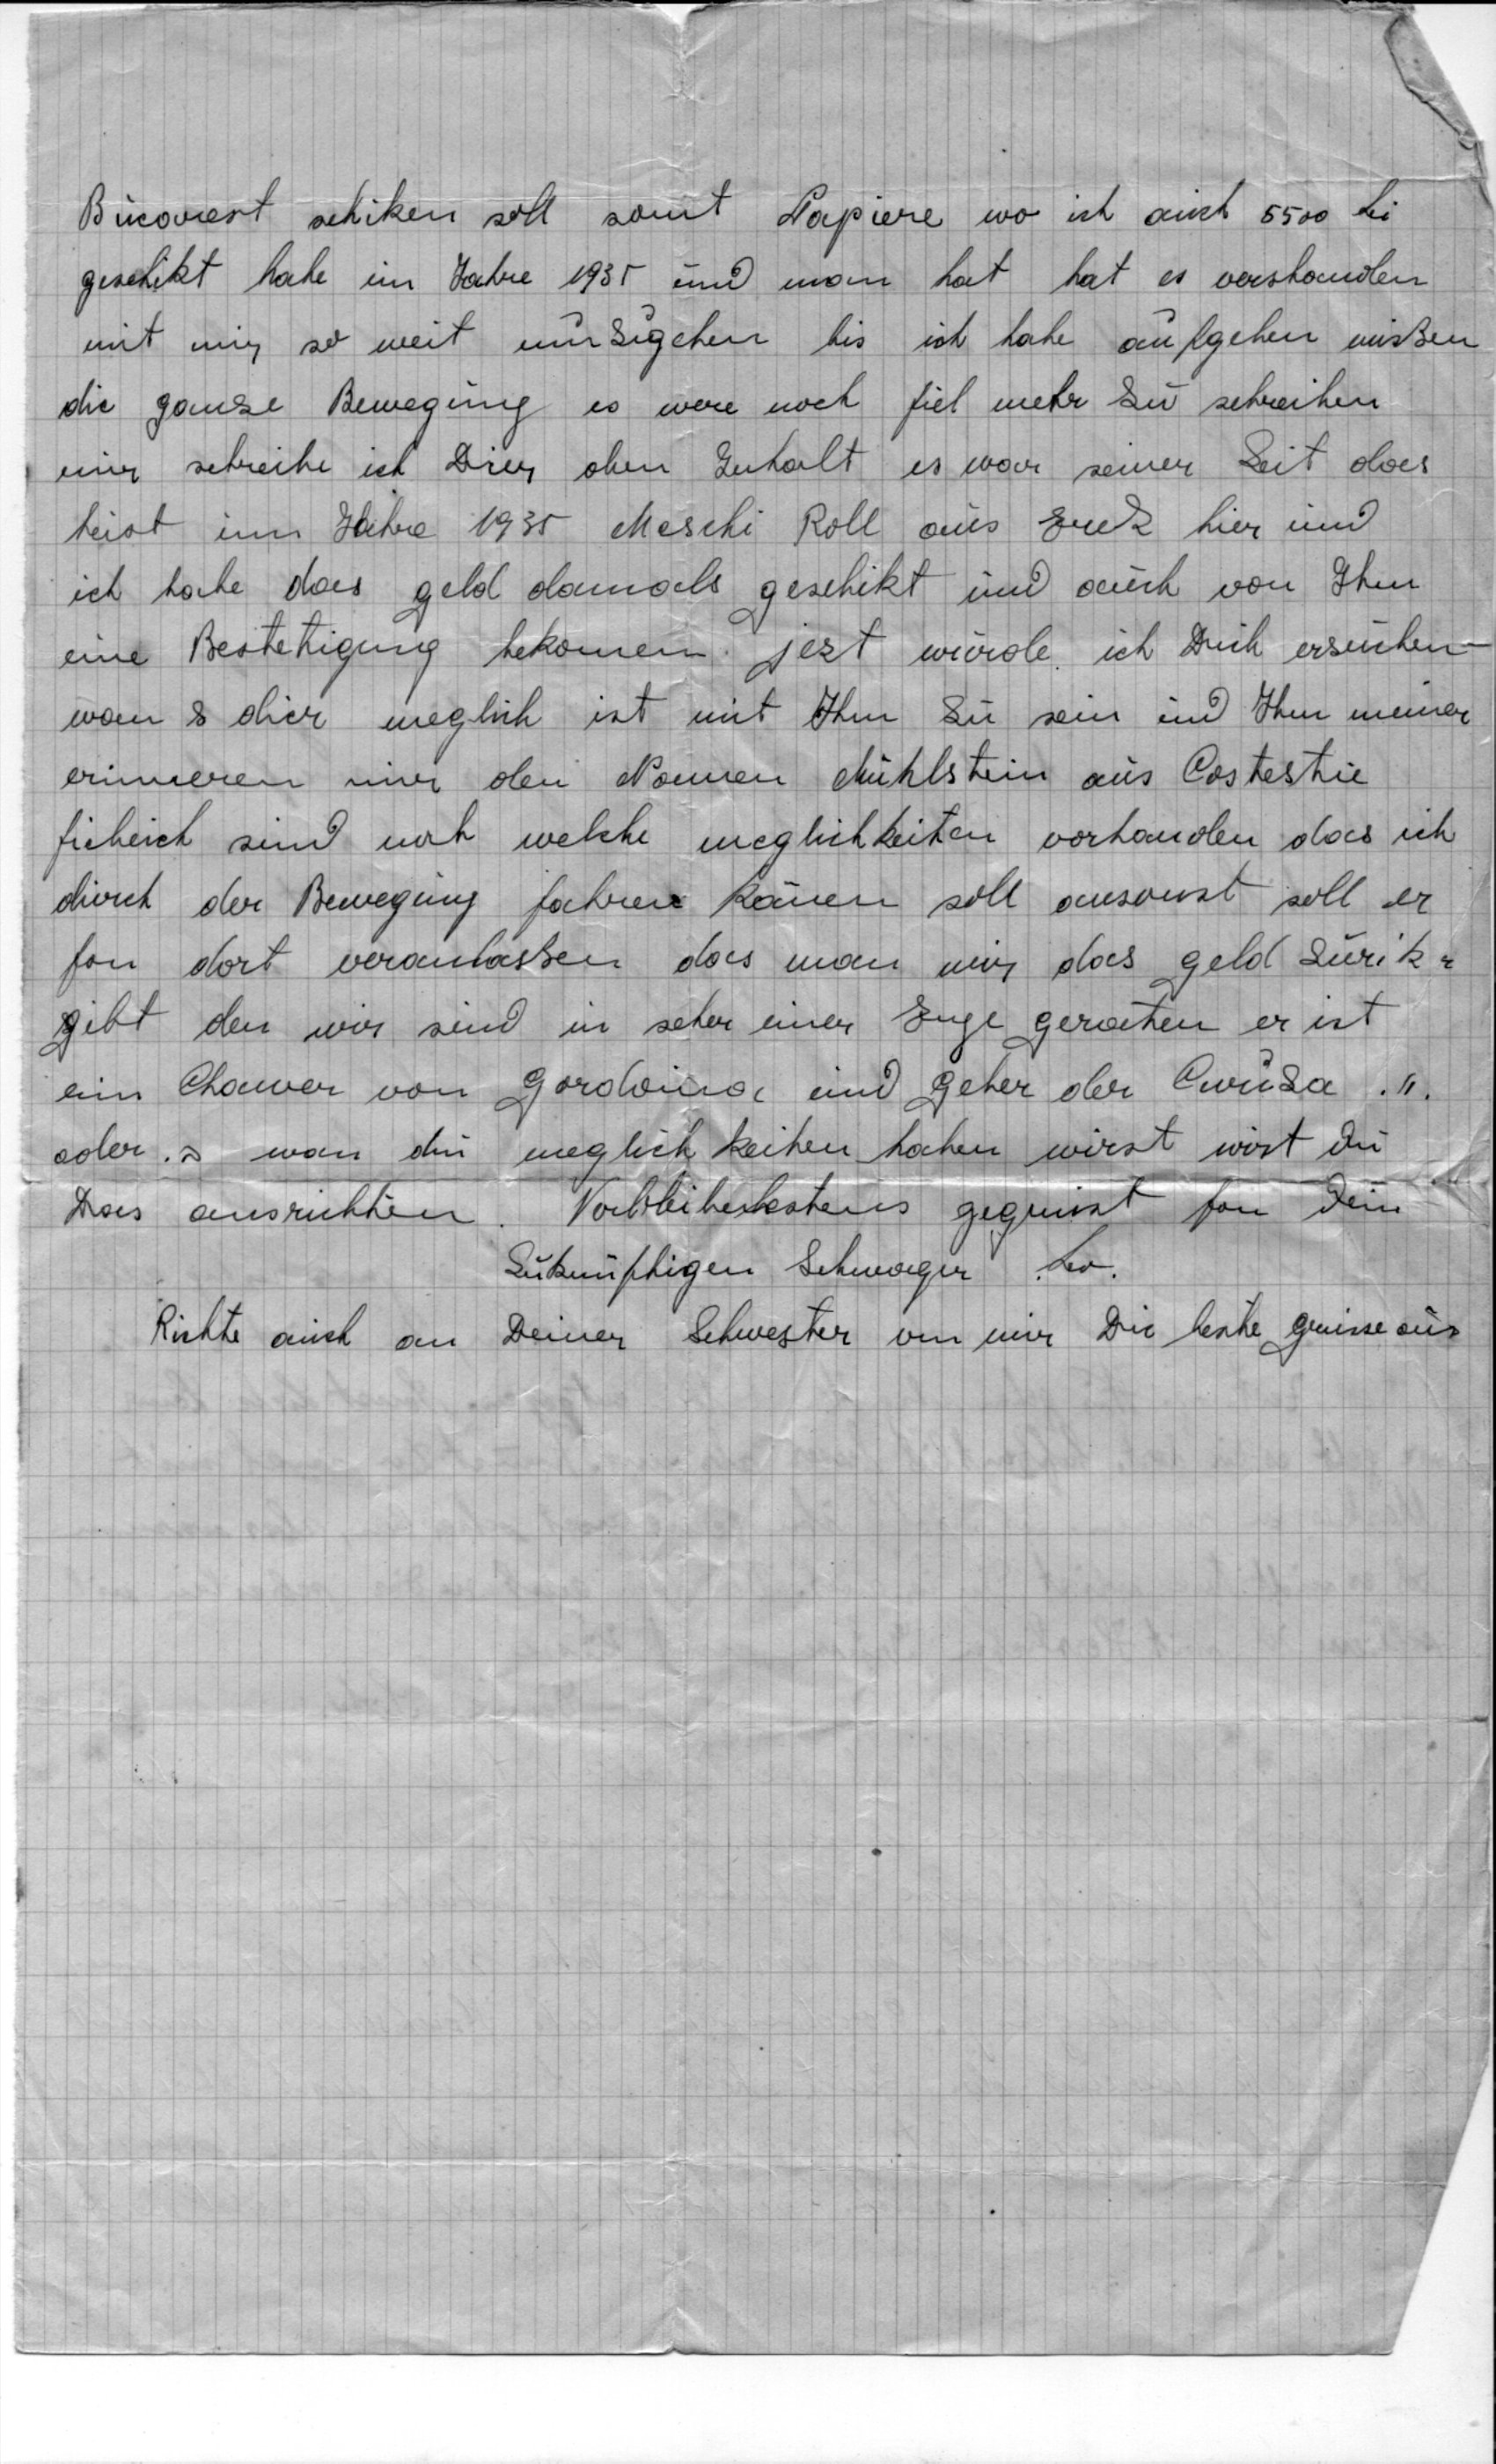 Bucarest schiken soll somt Papiere wo ich auch 5500 Lei
geschikt habe im Jahre 1935 und man hat hat es verstanden
mit mir so weit umzugehen bis ich habe aufgeben mißen
die ganze Bewegung es were noch fiel mehr zu schreiben
nur schreibe ich Dier den Inhalt es war seiner Zeit das
heist im Jahre 1935 Meschi Roll aus Erez hier und
ich habe das geld damals geschikt und auch von Ihm
eine Bestetigung bekomen. jezt würde ich Dich ersuchen
wan s dier meglich ist mit Ihm zu sein und Ihm meiner
erinneren nur den Namen Mühlstein aus Costestie
fieleich sind noch welche meglichkeiten vorhanden das ich
durch der Bewegung fahren känen soll ansonst soll er
fon dort veranlaßen das man mir das geld zurik=
gibt den wir sind in seher einer Enge geraten er ist
ein Chawer von Gordonia und Geher der Cwuza .".
oder. man du meglichkeiten haben wirst wirst du
Das ausrichten. gegrüist fon dein
Zukunftigen Schwager Leo.
Richte auch an Deiner Schwester von mir Die beste grüsse aus